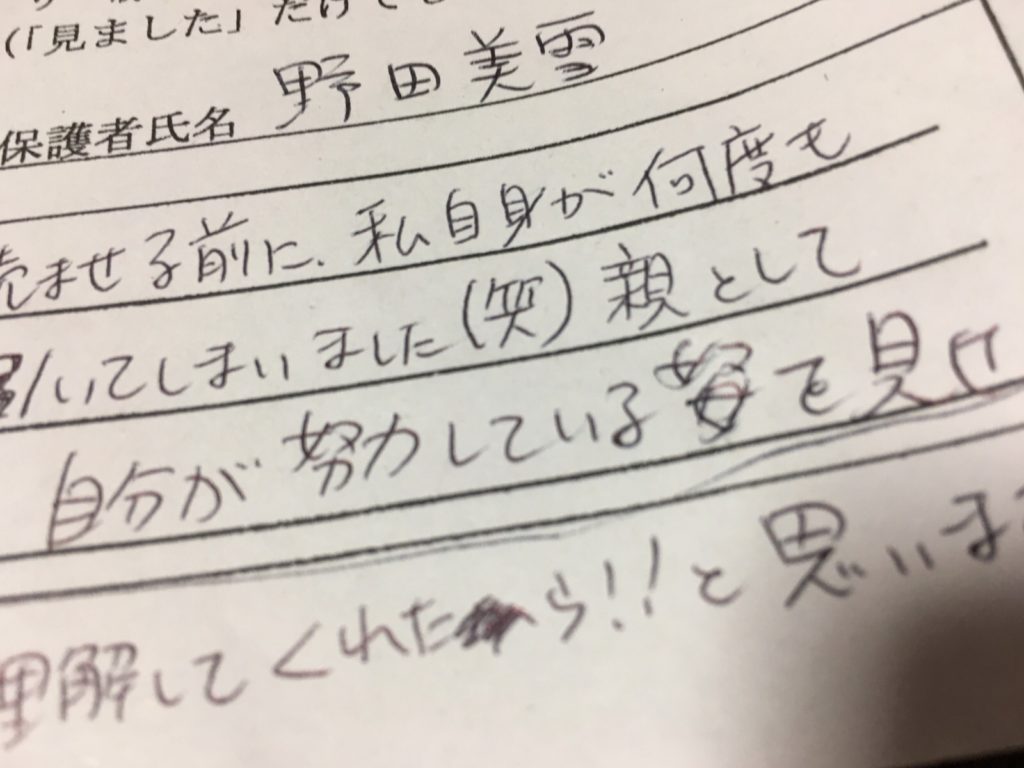 (「見ました」だけでも
保護者氏名 野田美雪
読ませる前に、私自身が何度も
いてしまいました(笑)親として
自分が努力している姿を見せ
理解してくれたら!!と思いま